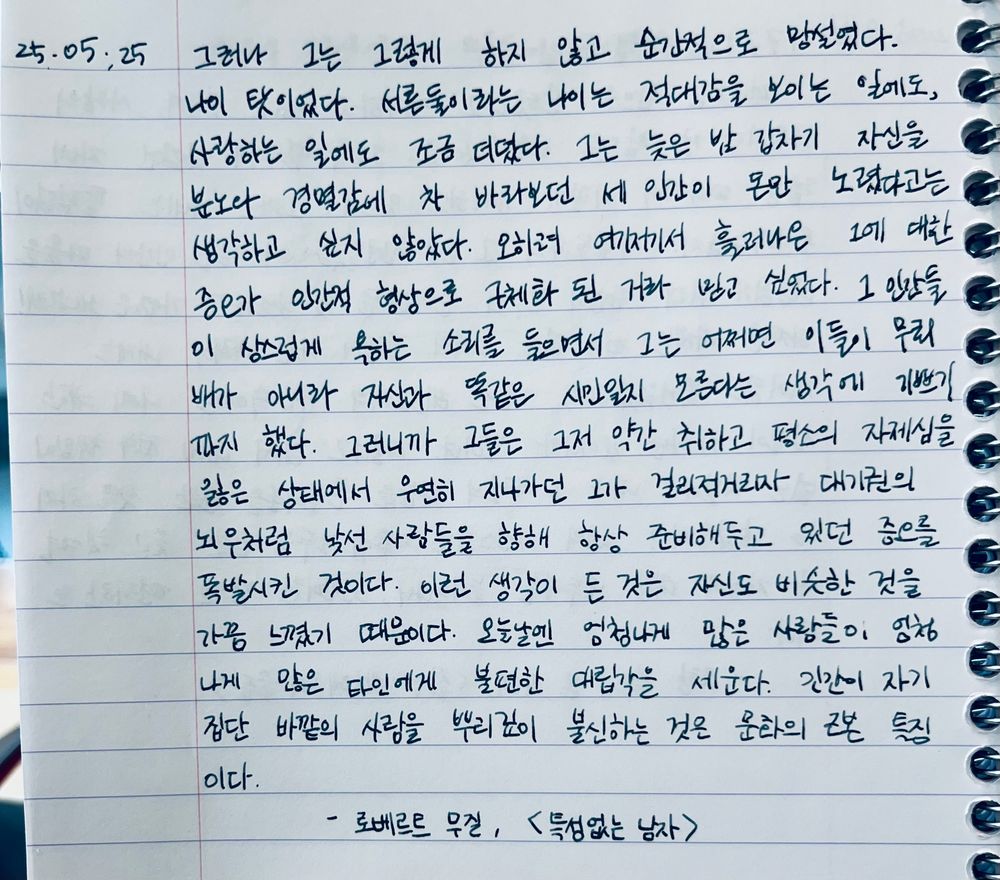 25.05.25 그러나 그는 그렇게 하지 않고 순간적으로 망설였다.
나이 탓이었다. 서른둘이라는 나이는 적대감을 보이는 일에도,
사랑하는 일에도 조금 더뎠다. 그는 늦은 밤 갑자기 자신을
분노와 경멸감에 차 바라보던 세 인간이 돈만 노렸다고는
생각하고 싶지 않았다. 오히려 여기저기서 흘러나온 그에 대한
증오가 인간적 형상으로 구체화 된 거라 믿고 싶었다. 그 인간들
이 상스럽게 욕하는 소리를 들으면서 그는 어쩌면 이들이 무뢰
배가 아니라 자신과 똑같은 시민일지 모른다는 생각에 기쁘기
까지 했다. 그러니까 그들은 그저 약간 취하고 평소의 자제심을
잃은 상태에서 우연히 지나가던 그가 걸리적거리자 대기권의
뇌우처럼 낯선 사람들을 향해 항상 준비해두고 있던 증오를
폭발시킨 것이다. 이런 생각이 든 것은 자신도 비슷한 것을
가끔 느꼈기 때문이다. 오늘날엔 엄청나게 많은 사람들이 엄청
나게 많은 타인에게 불편한 대립각을 세운다. 인간이 자기
집단 바깥의 사람을 뿌리깊이 불신하는 것은 문화의 근본 특징
이다.
- 로베르트 무질, <특성없는 남자>